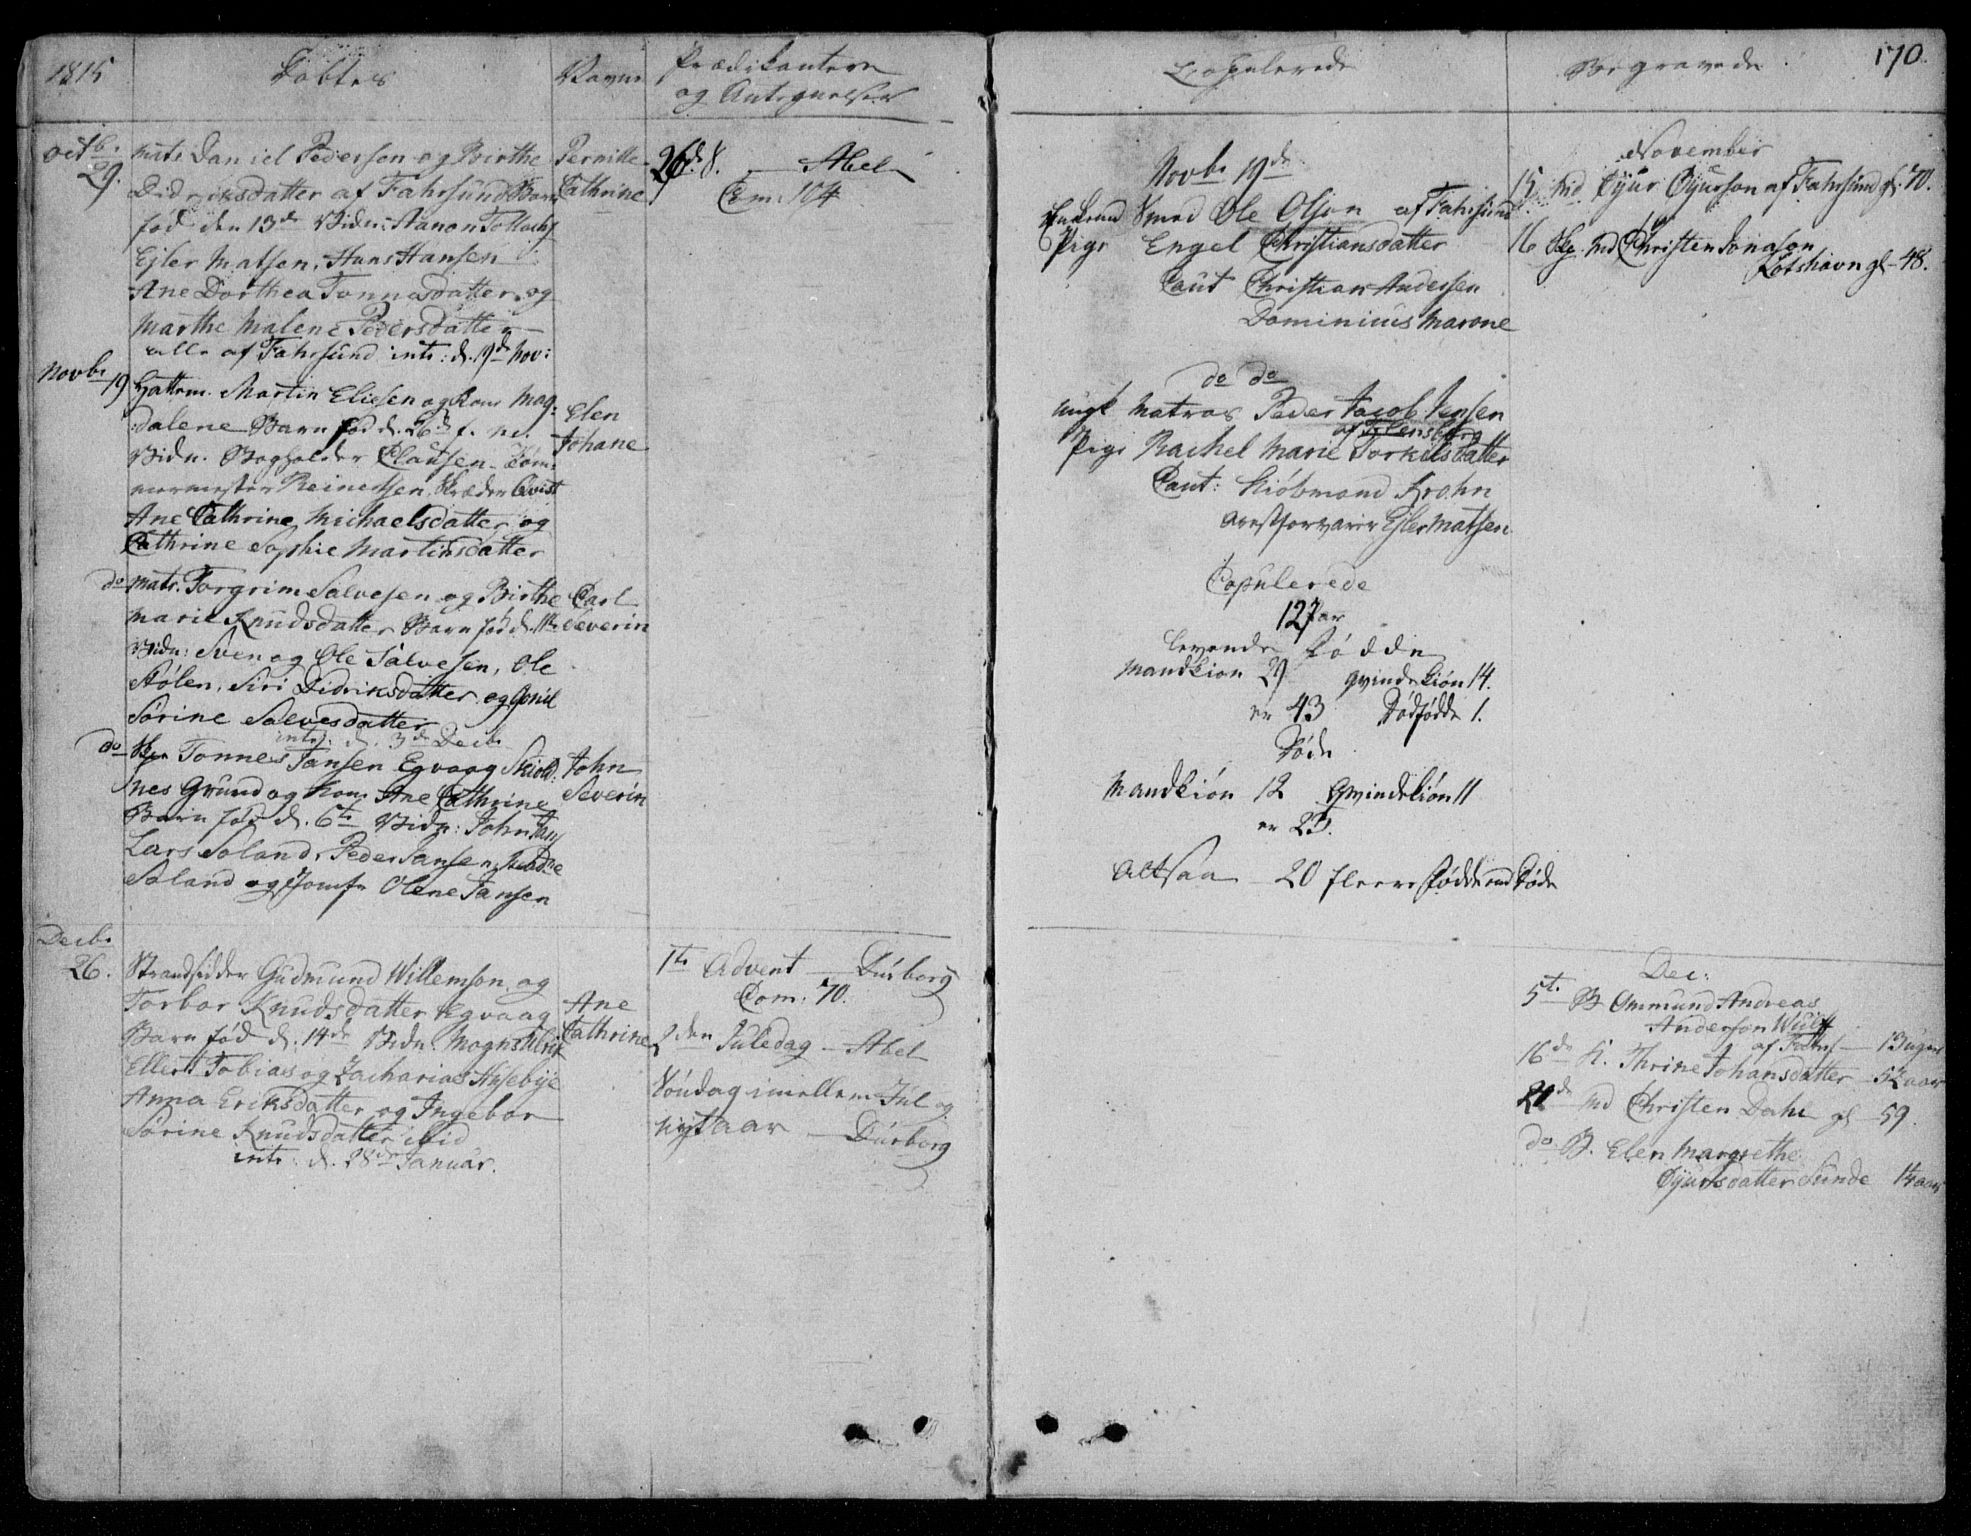 1815
Døbtes
Navne
Prædikantere
og Antegnelser
Octbr
29.
Matr. Daniel Pedersen og Birthe
Didriksdatter af Fahrsund Barn
fød den 13de Vidn: Aanon Tollachs
Ejler Matsen, Hans Hansen
Ane Dorthea Tonnasdatter og
Marthe Malene Pedersdatter
alle af Fahrsund intr: d. 19de Nov:
Pernille
Cathrine
26de S. — Abel
Com: 104
Novbr
19
Hattem. Martin Eliesen og Kone Mag-
dalene Barn fød d. 26de f. m.
Vidn. Bogholder Clausen Tøm-
mermester Reinertsen, Skræder Qvist
Ane Cathrine Michaelsdatter og
Cathrine Sophie Martinsdatter
Elen
Johane
do Matr. Torgrim Salvesen og Birthe
Marie Knudsdatter Barn fød d. 11te
Vidn: Sven og Ole Salvesen, Ole
Stølen, Siri Didriksdatter og Gonil
Sørine Salvesdatter
intr: d. 3de Decbr
Carl
Severin
do Tonnes Jansen Egvaag Skiold-
nes Grund og Kone Ane Cathrine
Barn fød d. 6te Vidn: John Jans
Lars Soland, Peder Jansen, Mad
Soland og Jomfr Olene Jansen
John
Severin
Decbr
26.
Strandsidder Gudmund Willemson og
Torbor Knudsdatter Egvaag
Barn fød d. 14de Vidn. Mogns
Ellert Tobias og Zacharias Husebye
Anna Eriksdatter og Ingebor
Sørine Knudsdatter ibid
intr: d. 28de Januar.
Ane
Cathrine
1te Advent — Dürborg
Com: 70.
2den Juledag — Abel
Søndag imellem Jul og
Nytaar — Dürborg
Copulerede
Novbr 19de
Enkemd Smed Ole Olsen af Fahrsund
Pige Engel Christiansdatter
Caut Christian Andersen
Dominicus Marone
do do
ungk Matros Peder Jacob Jensen
af Flensborg
Pige Rachel Marie Torkildsdatter
Caut: Kiøbmand Krohn
Arestforvarer Ejler Matsen
Copulerede
12 Par
levende Fødde
Mandkion 29 Qvindekión 14.
er 43 Dødfødde 1.
Døde
Mandkión 12 Qvindekión 11
er 23.
Altsaa — 20 fleere Fødde end Døde
Begravede
170.
November
15 Md Öyur Öyurson af Fahrsund gl. 70.
16 Md Christen Jonason
Lotshavn gl — 48.
Dec:
5te B Ommund Andreas
Anderson Wulff
af Fahrs — 13 uger
16de K. Thrine Johansdatter — 52 aar
21de Md Christen Dahl gl — 59.
do B. Elen Margrethe
Öyursdatter Sunde 14 aar